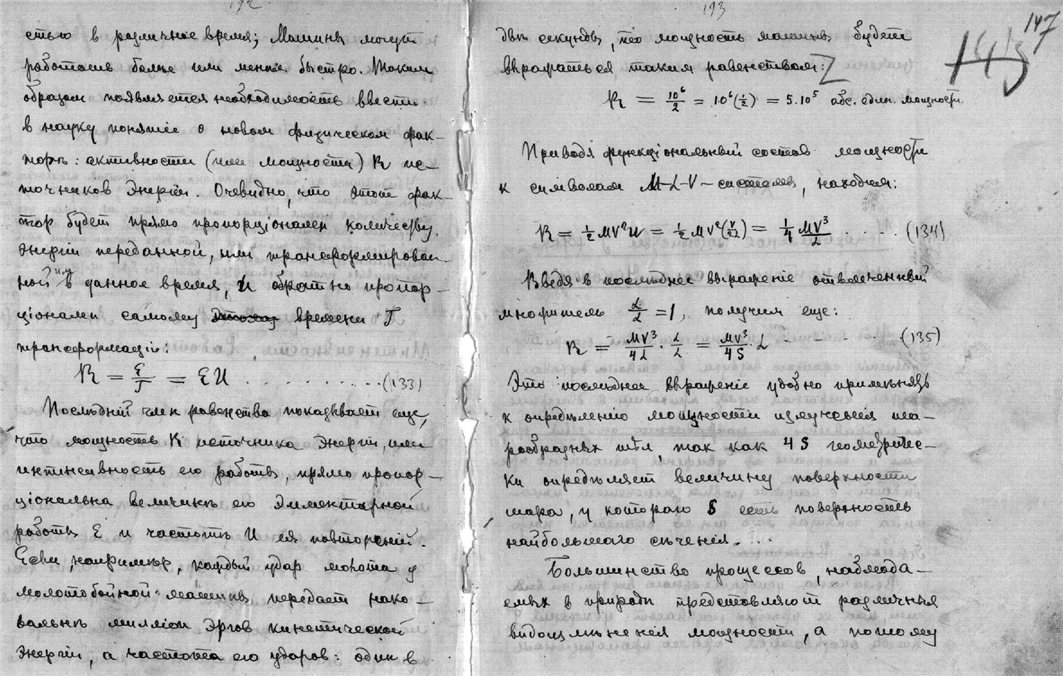 192
стью в различное время; Машины могут
работать более или менее быстро. Таким
образом появляется необходимость ввести
в науку понятие о новом физическом фак-
торѣ: активности (или мощности) К ис-
точников Энергiи. Очевидно, что этот фак-
тор будет прямо пропорцiонален количеству
энергiи переданной, или трансформирован-
ной им в данное время, и обратно пропор-
цiонален самому времени T
трансформацiи:
К = E/T = EИ . . . . . . . . . . (133)
Послѣднiй член равенства показывает еще,
что мощность К источника Энергiи, или
интенсивность его работы, прямо пропор-
цiональна величинѣ его Элементарной
работы E и частотѣ И ея повторенiй.
Если, напримѣр, каждый удар молота у
молотобойной машины передает нако-
вальнѣ миллiон Эргов кинетической
Энергiи, а частота его ударов: один в
193
147
двѣ секунды, то мощность машины будет
выражаться таким равенством:
К = 10⁶/2 = 10⁶(1/2) = 5.10⁵ абс. един. мощности.
Приводя функцiональный состав мощности
к символам M-L-V-системы, находим:
К = 1/2 MV²И = 1/2 MV²(V/2L) = 1/4 MV³/L . . . . (134)
Введя в послѣднее выраженiе отвлеченный
множитель L/L = 1, получим еще:
К = MV³/4L · L/L = MV³/4S · L . . . . (135)
Это послѣднее выраженiе удобно примѣнять
к опредѣленiю мощности излученiя ша-
рообразных тѣл, так как 4S геометричес-
ки опредѣляет величину поверхности
шара, у котораго S есть поверхность
наибольшаго сѣченiя. . .
Большинство процессов, наблюда-
емых в природѣ представляют различныя
видоизмѣненiя мощности, а потому